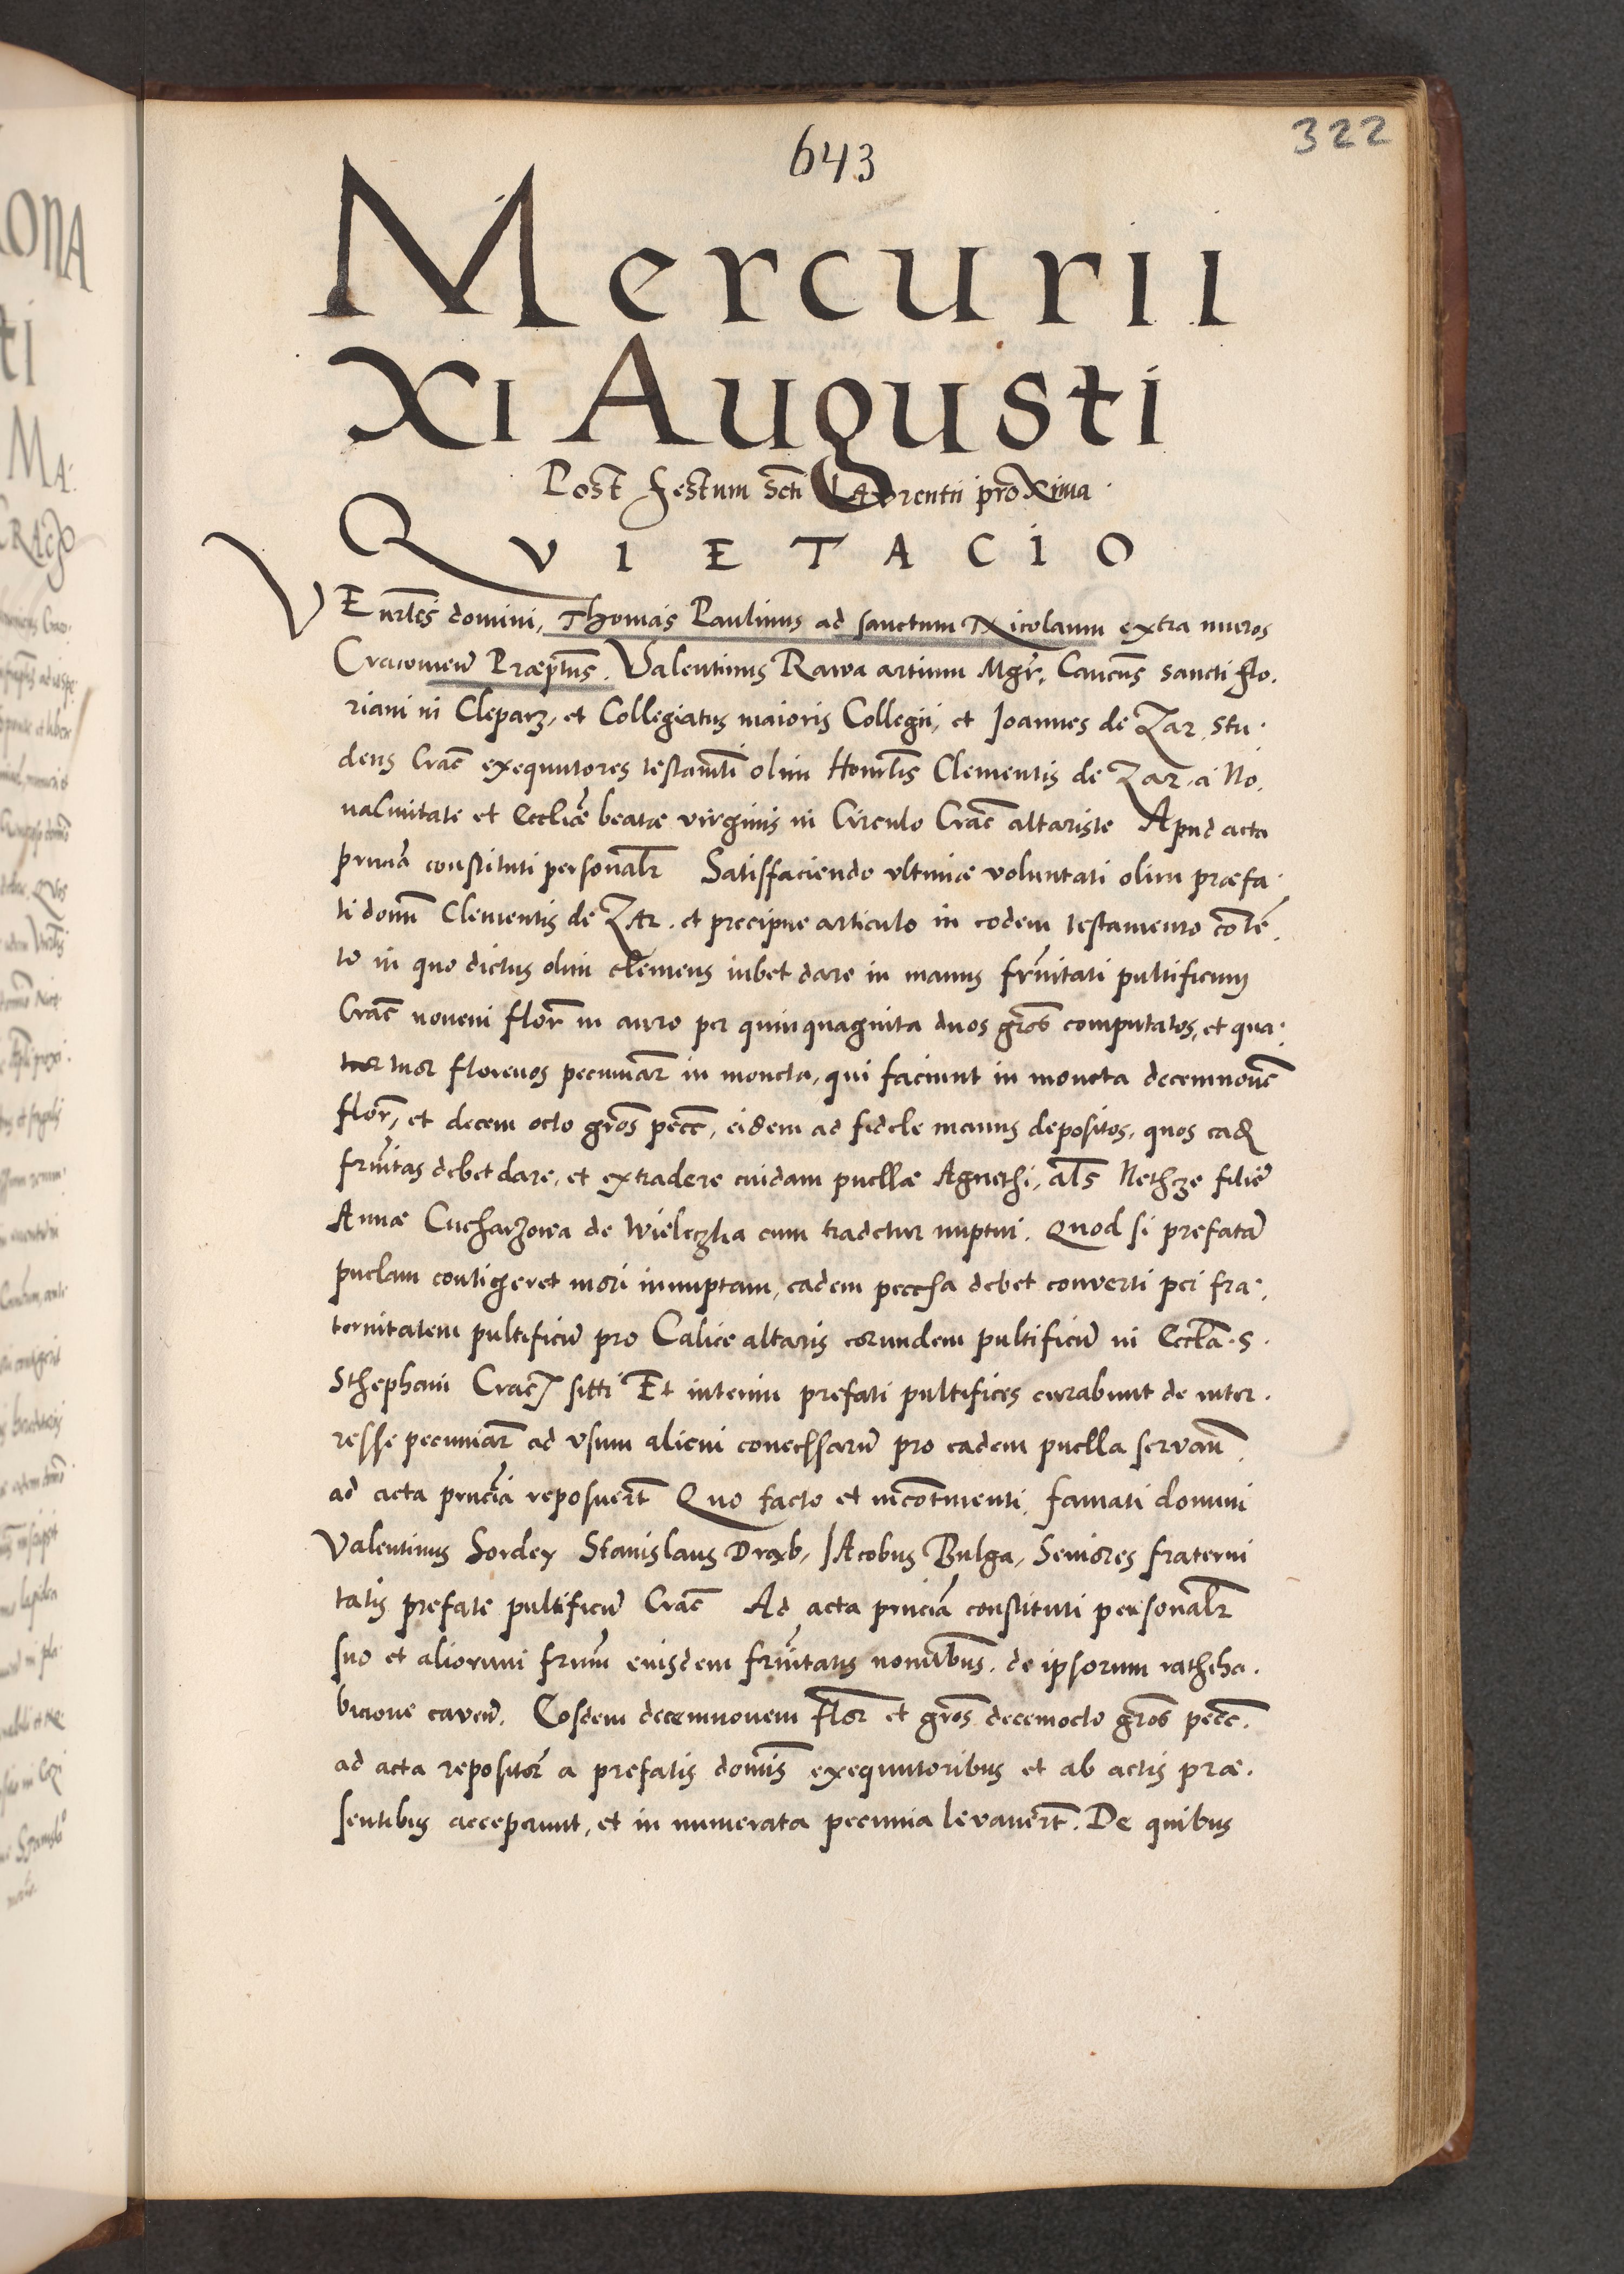 322
643
Mercurii
XI Augusti
Post festum Scti Laurentii proxima.
QVIETACIO
VEnrles domini, Thomas Paulinus ad sanctum Nicolaum extra muros
Cracouien Præptus. Valentinus Rawa artium Mgr, Cancus sancti Flo.
riani in Cleparz, et Collegiatus maioris Collegii, et Ioannes de Zar stu.
dens Crac exequutores testamti olim Honrlis Clementis de Zar. a No.
ua Ciuitate et Eccliæ beatæ virginis in Circulo Crac altariste Apud acta
prncia constituti personalr Satisfaciendo vltimæ voluntati olim præfa.
ti domi Clementis de Zar. et precipue articulo in eodem testamento conte.
to in quo dictus olim clemens iubet dare in manus frnitati pultificum
Crac novem flor in auro per quinquaginta duos gros computatos, et qua.
tuor florenos pecuniar in moneta, qui faciunt in moneta decemnove
flor, et decem octo gros pecc, eidem ad fidele manus depositos, quos ead
frnitas debet dare, et extradere cuidam puellæ Agnethi, als Nethcze filie
Annæ Cucharzowa de Wieleczka cum tradetur nuptui. Quod si prefata
puelam contigeret mori innuptam, eadem peccha debet converti per fra.
ternitatem pultificu pro Calice altaris eorundem pultificu in Eccla. S.
Sthephani Crac sitti Et interim prefati pultifices curabunt de inter.
resse pecuniar ad vsum alicui conecssaru pro eadem puella servan.
ad acta prncia reposuert Quo facto et incontinenti, famati domini
Valentinus Sordey Stanislaus Drab, IAcobus Bulga, Seniores fraterni
tatis prefate pultificu Crac Ad acta prncia constituti personalr
suo et aliorum frum euisdem frnitatis nominibus. de ipsorum rathiha.
bicione caven. Eosdem decemnovem flor et gros decemocto gros pecc.
ad acta repositor a prefatis domis exequutoribus et ab actis præ.
sentibus acceperunt, et in numerata pecunia levavert. De quibus